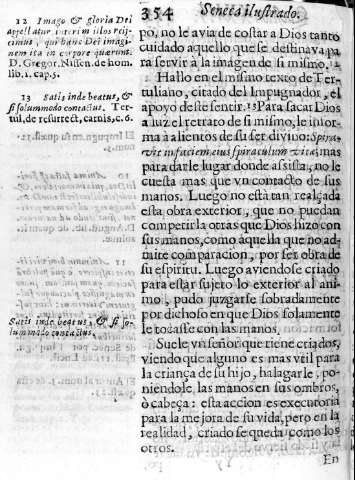 354 Seneca ilustrado.
12 Imago & gloria Dei
appellatur interim illos reij-
cimus, qui hanc Dei imagi-
nem ita in corpore quærunt.
D. Gregor. Nissen. de hom.
lib. 1. cap. 5.
13 Satis inde beatus, &
si solummodo contactus. Ter-
tul. de resurrect. carnis, c. 6.
Satis inde beatus, & si so-
lummodo contactus.
po, no le avia de costar a Dios tanto
cuidado aquello que se destinava pa
ra servir à la imagen de si mismo. 12
Hallo en el mismo texto de Ter-
tuliano, citado del Impugnador, el
apoyo deste sentir. 13 Para sacar Dios
a luz el retrato de si mismo, le infor
ma à alientos de su ser divino: Spira-
vit in faciem eius spiraculum vitæ; mas
para darle lugar donde assista, no le
cuesta mas que vn contacto de sus
manos. Luego no està tan realçada
esta obra exterior, que no puedan
competirla otras que Dios hizo con
sus manos, como aquella que no ad-
mite comparacion, por ser obra de
su espiritu. Luego aviendose criado
para estàr sujeto lo exterior al ani-
mo, pudo juzgarse sobradamente
por dichoso en que Dios solamente
le tocasse con las manos.
Suele vn señor que tiene criados,
viendo que alguno es mas vtil para
la criança de su hijo, halagarle, po-
niendole, las manos en sus ombros,
ò cabeça: esta accion es executoria
para la mejora de su vida, pero en la
realidad, criado se queda como los
otros.
En